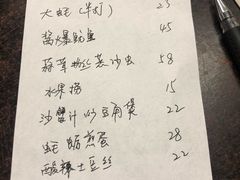 大蚝(半打) 25
酱爆鱿鱼 45
蒜茸粉丝蒸沙虫 58
水果捞 15
沙蟹汁炒豆角煲 22
蚝腊煎蛋 28
酸辣土豆丝 22